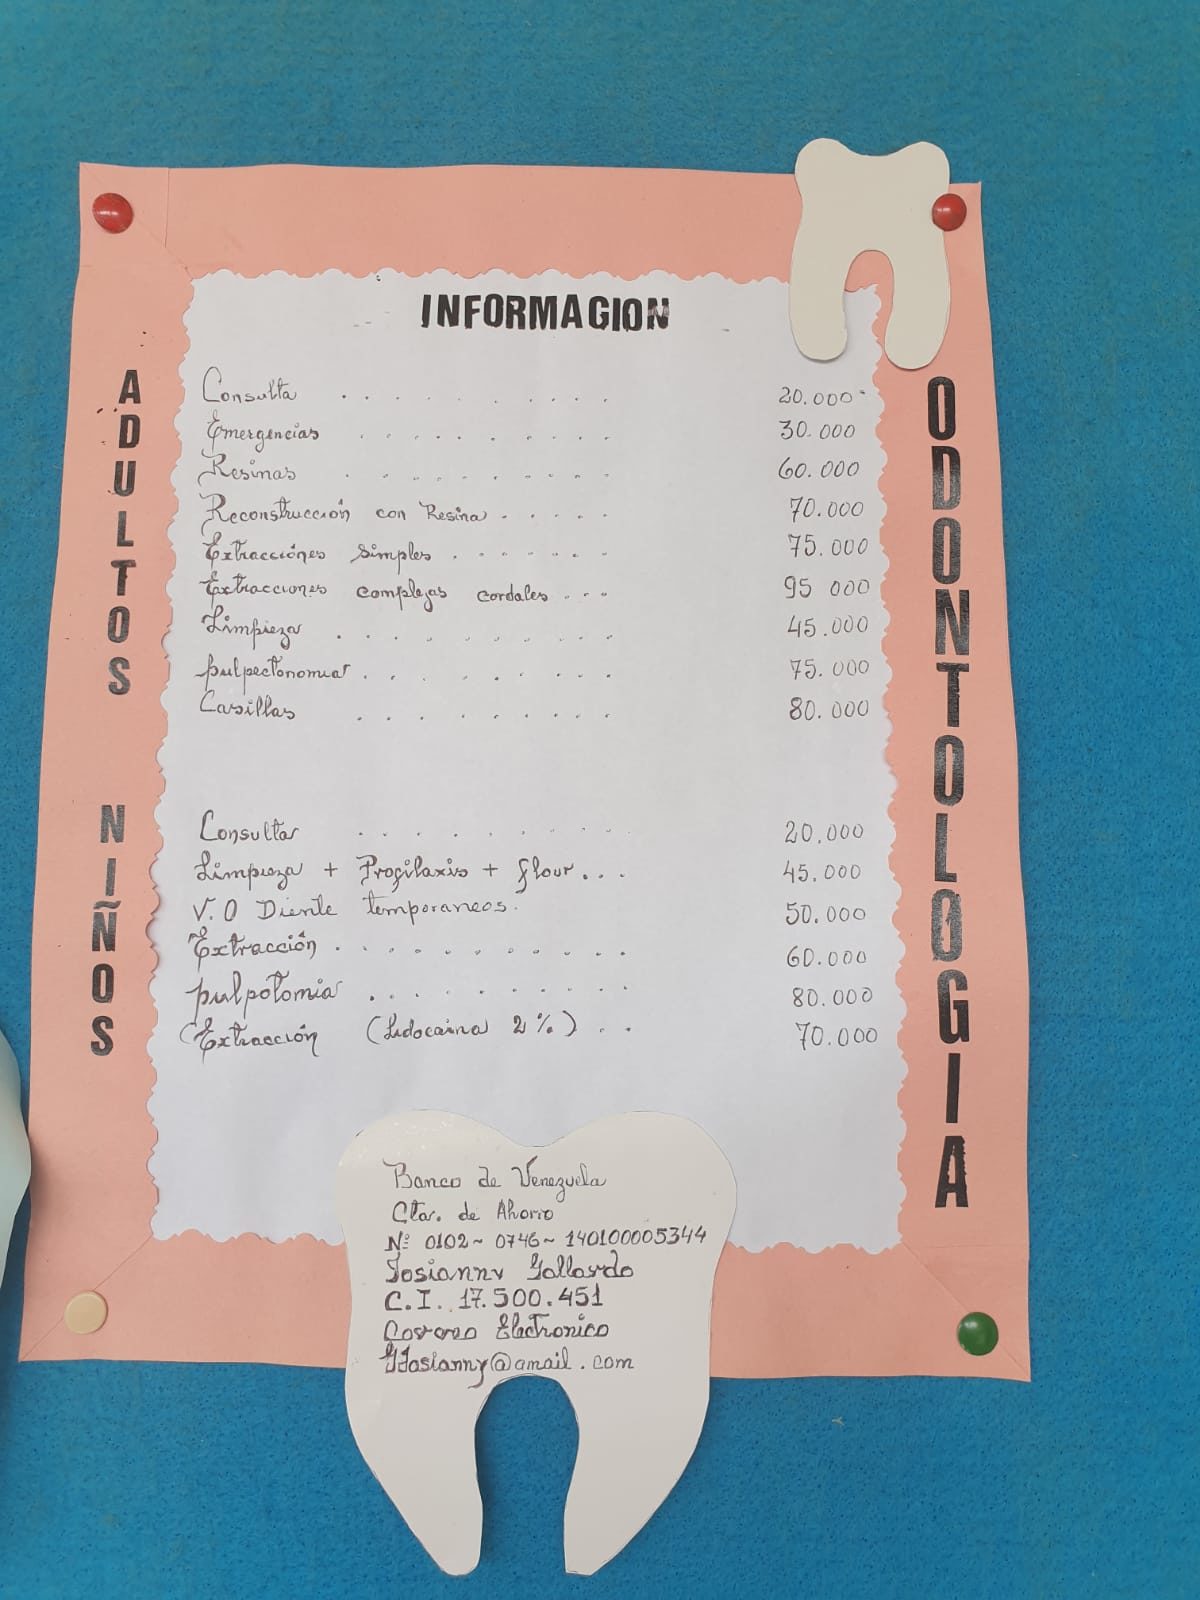 INFORMACION
ADULTOS
Consulta . . . . . . . . . . 20.000
Emergencias . . . . . . . . . . 30.000
Resinas . . . . . . . . . 60.000
Reconstrucción con Resina . . . . . 70.000
Extracciónes simples . . . . . . . 75.000
Extracciones complejas cordales . . . 95 000
Limpieza . . . . . . . . . . 45.000
pulpectonomiar . . . . . . . . 75.000
Casillas . . . . . . . . 80.000
NIÑOS
Consulta . . . . . . . . . 20.000
Limpieza + Profilaxis + flour. . . 45.000
V.O Diente temporaneos. 50.000
Extracción . . . . . . . . . . 60.000
pulpotomia . . . . . . . . . . 80.000
Extracción (Lidocaina 2%) . . 70.000
ODONTOLOGIA
Banco de Venezuela
Cta. de Ahorro
Nº 0102~ 0746~ 140100005344
Josianny Gallardo
C.I. 17.500.451
Correo Electronico
GJosianny@gmail.com